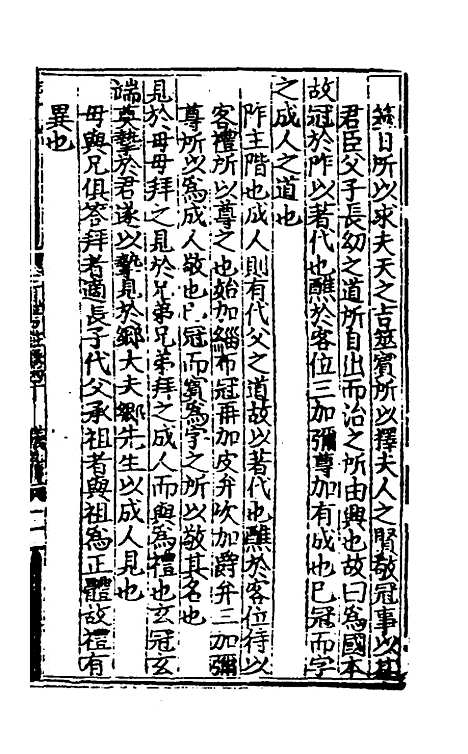 筮日所以求夫天之吉筮賓所以擇夫人之賢敬冠事以其
君臣父子長幼之道所自出而治之所由興也故曰為國本
故冠於阼以著代也醮於客位三加彌尊加有成也已冠而字
之成人之道也
阼主階也成人則有代父之道故以著代也醮於客位待以
客禮所以尊之也始加緇布冠再加皮弁次加爵弁三加彌
尊所以為成人敬也已冠而賓為字之所以敬其名也
見於母母拜之見於兄弟兄弟拜之成人而與為禮也玄冠玄
端奠摯於君遂以摯見於鄉大夫鄉先生以成人見也
母與兄俱答拜者適長子代父承祖者與祖為正體故禮有
異也